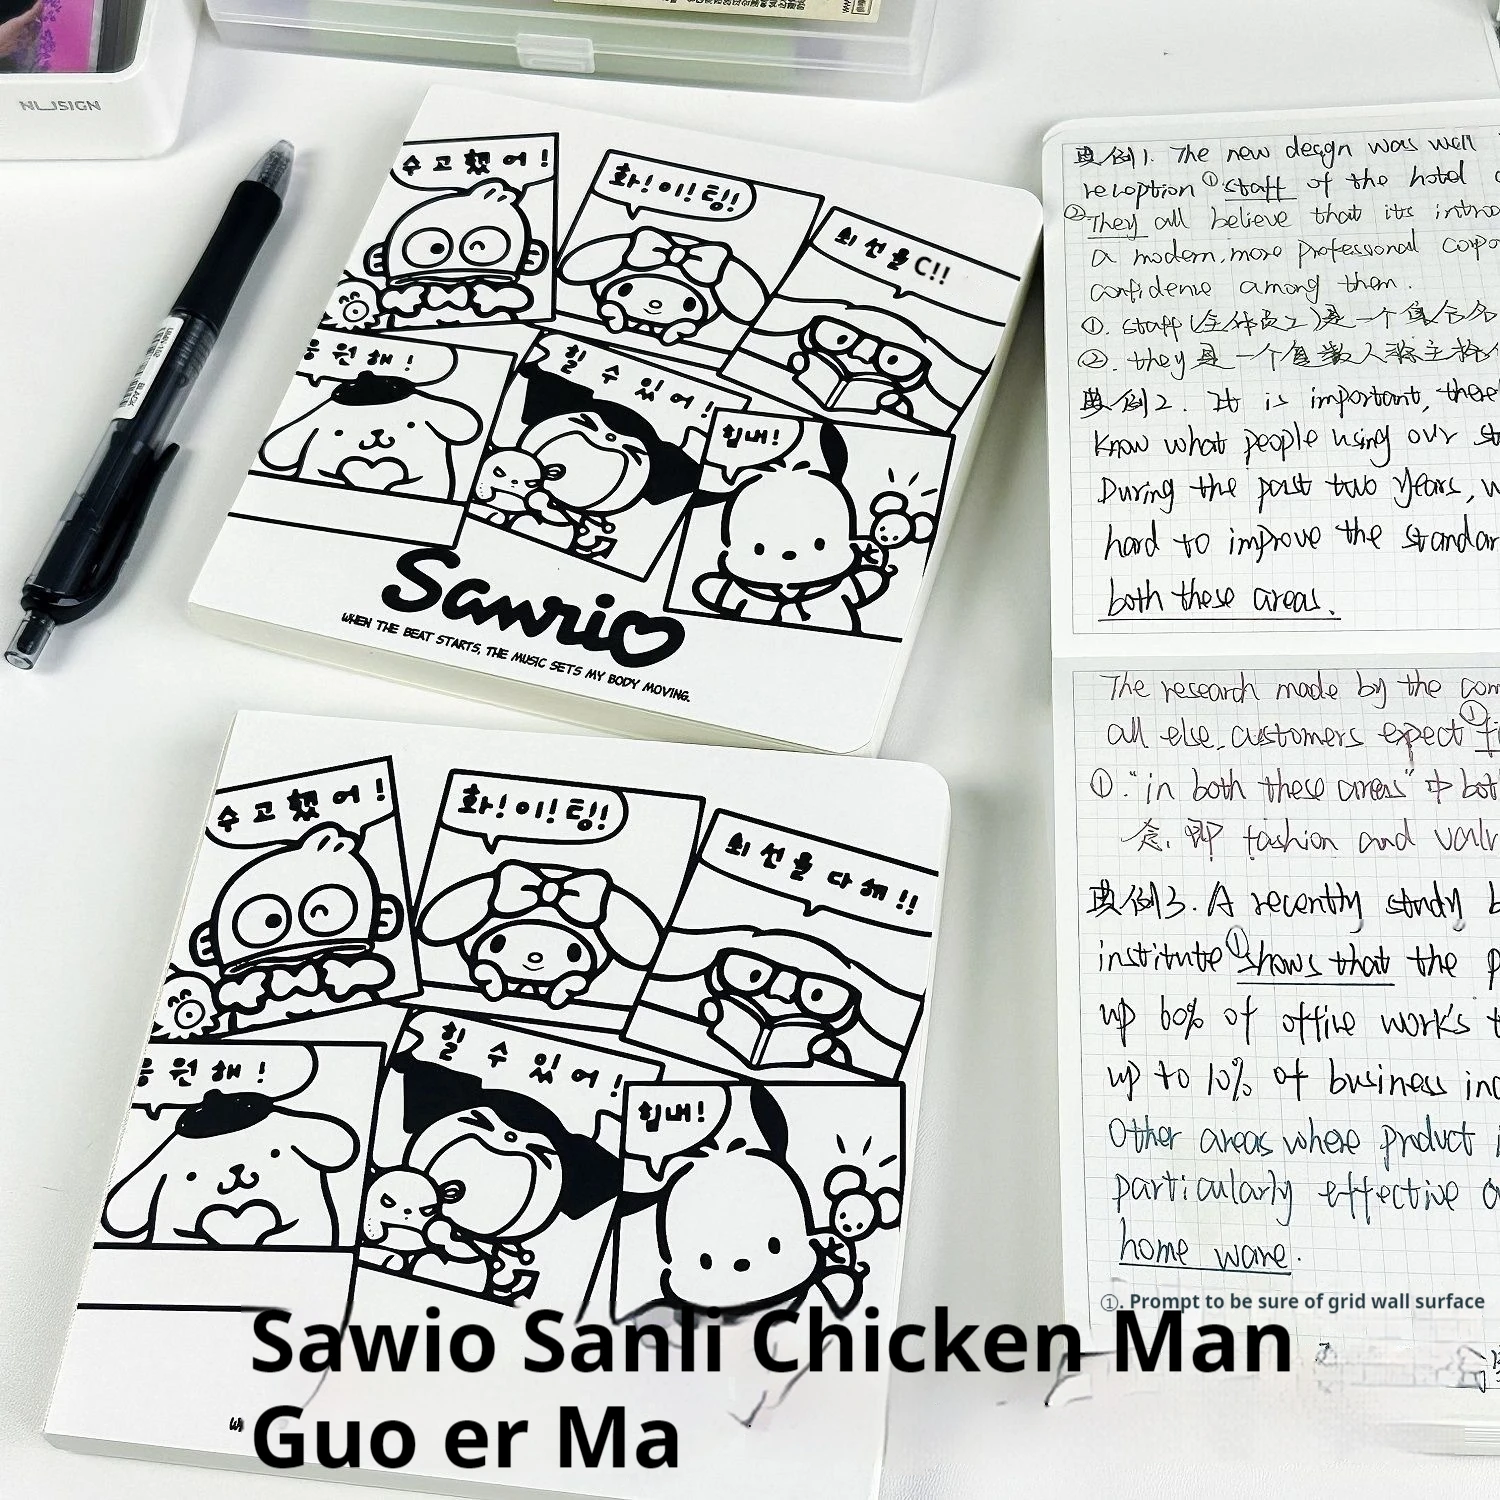 수고했어!
화!이!팅!!
최선을C!!
응원해!
할수있어!
힘내!
Sanrio
WHEN THE BEAT STARTS, THE MUSIC SETS MY BODY MOVING.
수고했어!
화!이!팅!!
최선을다해!!
응원해!
할수있어!
힘내!
Sawio Sanli Chicken Man
Guo er Ma
BLACK
典例1. The new design was well
reception ①staff of the hotel
②They all believe that its intro
a modern, more professional corpo
confidence among them.
①. staff (全体员工)是一个集合名
②. they 是一个复数人称主格
典例2. It is important, there
know what people using our st
During the past two years, w
hard to improve the standar
both these areas.
The research made by the com
all else, customers expect ①fi
①. "in both these areas" 中 bot
念, 即 fashion and valu
典例3. A recently study b
institute ①shows that the p
up 60% of office works t
up to 10% of business inc
Other areas where product i
particularly effective a
home ware.
①. Prompt to be sure of grid wall surface